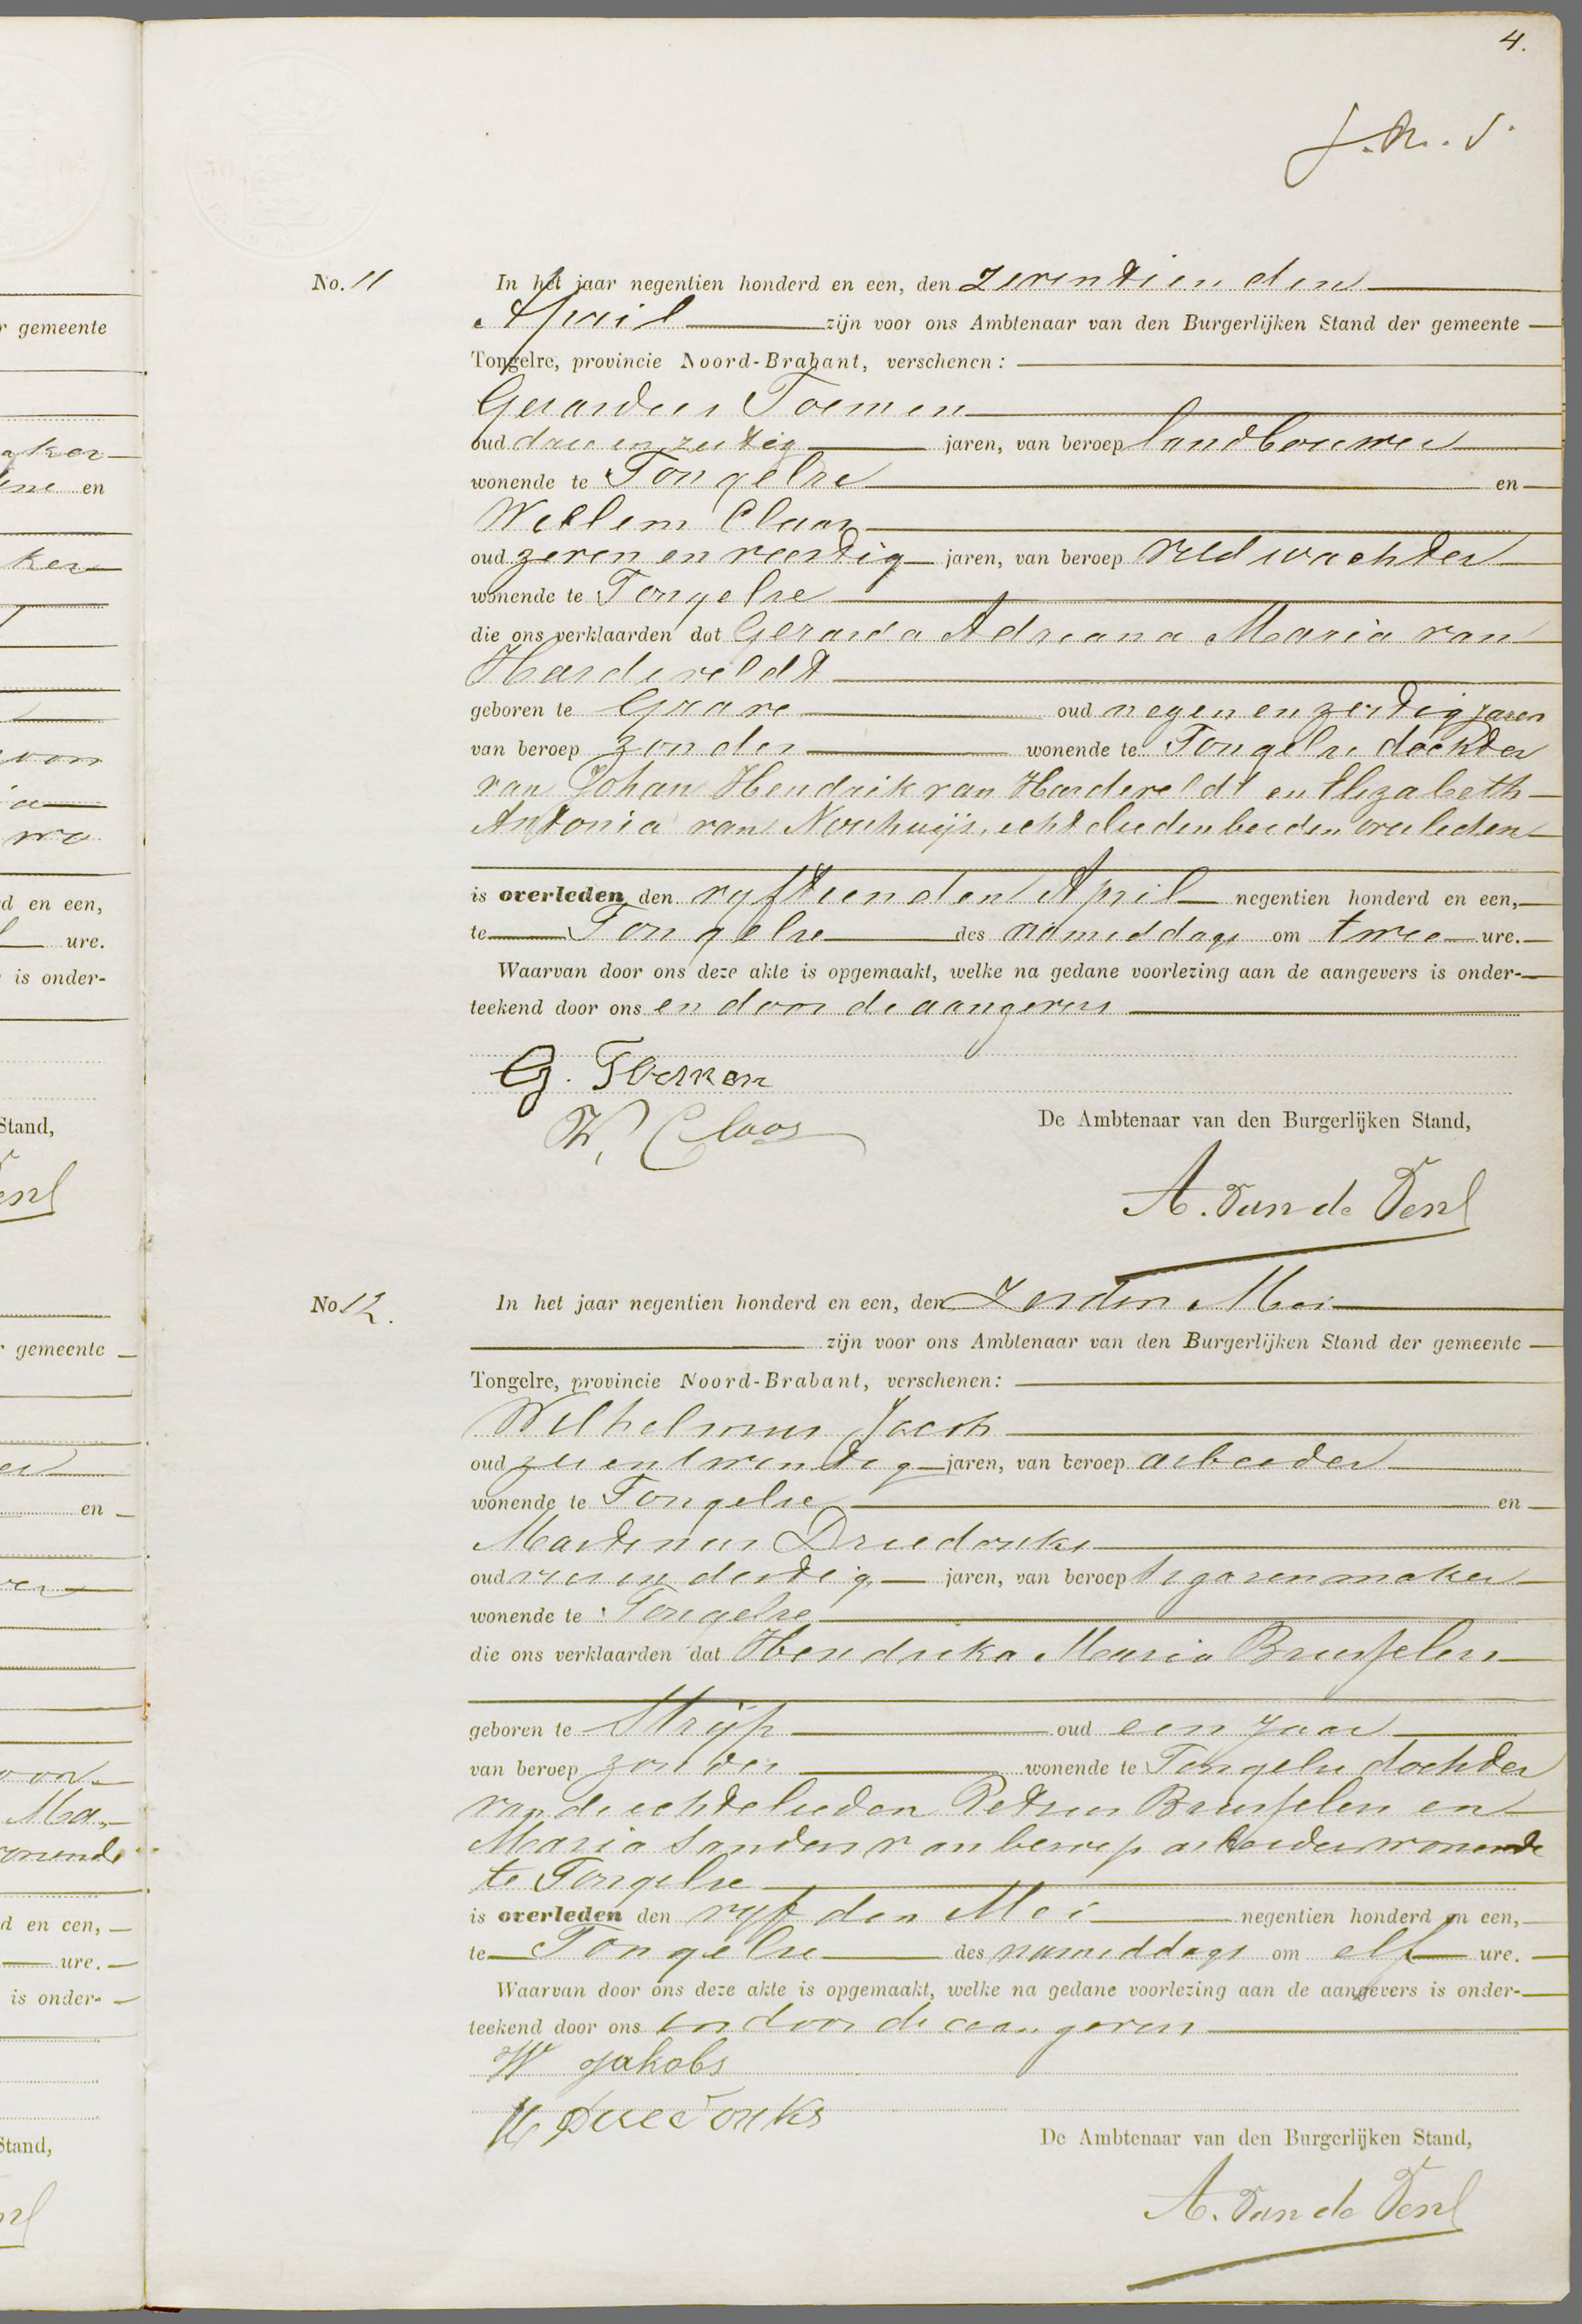 4.
No. 11 In het jaar negentien honderd en een, den zeventienden
April zijn voor ons Ambtenaar van den Burgerlijken Stand der gemeente
Tongelre, provincie Noord-Brabant, verschenen:
Gerardus Toemen
oud drie en zestig jaren, van beroep landbouwer
wonende te Tongelre en
Willem Claas
oud zeven en veertig jaren, van beroep veldwachter
wonende te Tongelre
die ons verklaarden dat Gerarda Adriana Maria van
Harderveldt
geboren te Grave oud negen en zestig jaren
van beroep zonder wonende te Tongelre dochter
van Johan Hendrik van Harderveldt en Elizabeth
Antonia van Nouhuijs, echtelieden beiden overleden
is overleden den vyftienden April negentien honderd en een,
te Tongelre des namiddags om twee ure.
Waarvan door ons deze akte is opgemaakt, welke na gedane voorlezing aan de aangevers is onder-
teekend door ons en door de aangevers
G.
W. Claas
De Ambtenaar van den Burgerlijken Stand,
A. Van de Ven
No 12. In het jaar negentien honderd en een, den Zesden Mei
zijn voor ons Ambtenaar van den Burgerlijken Stand der gemeente
Tongelre, provincie Noord-Brabant, verschenen:
Wilhelmus Jacobs
oud zes en twintig jaren, van beroep arbeider
wonende te Tongelre en
Martinus Driedonks
oud vier en dertig jaren, van beroep sigarenmaker
wonende te Tongelre
die ons verklaarden dat Hendrika Maria Brusselers
geboren te Strijp oud een jaar
van beroep zonder wonende te Tongelre dochter
van de echtelieden Petrus Brusselers en
Maria Sanders van beroep arbeider wonende
te Tongelre
is overleden den vyfden Mei negentien honderd en een,
te Tongelre des namiddags om elf ure.
Waarvan door ons deze akte is opgemaakt, welke na gedane voorlezing aan de aangevers is onder-
teekend door ons en door de aangevers
W Jakobs
M Driedonks
De Ambtenaar van den Burgerlijken Stand,
A. Van de Ven